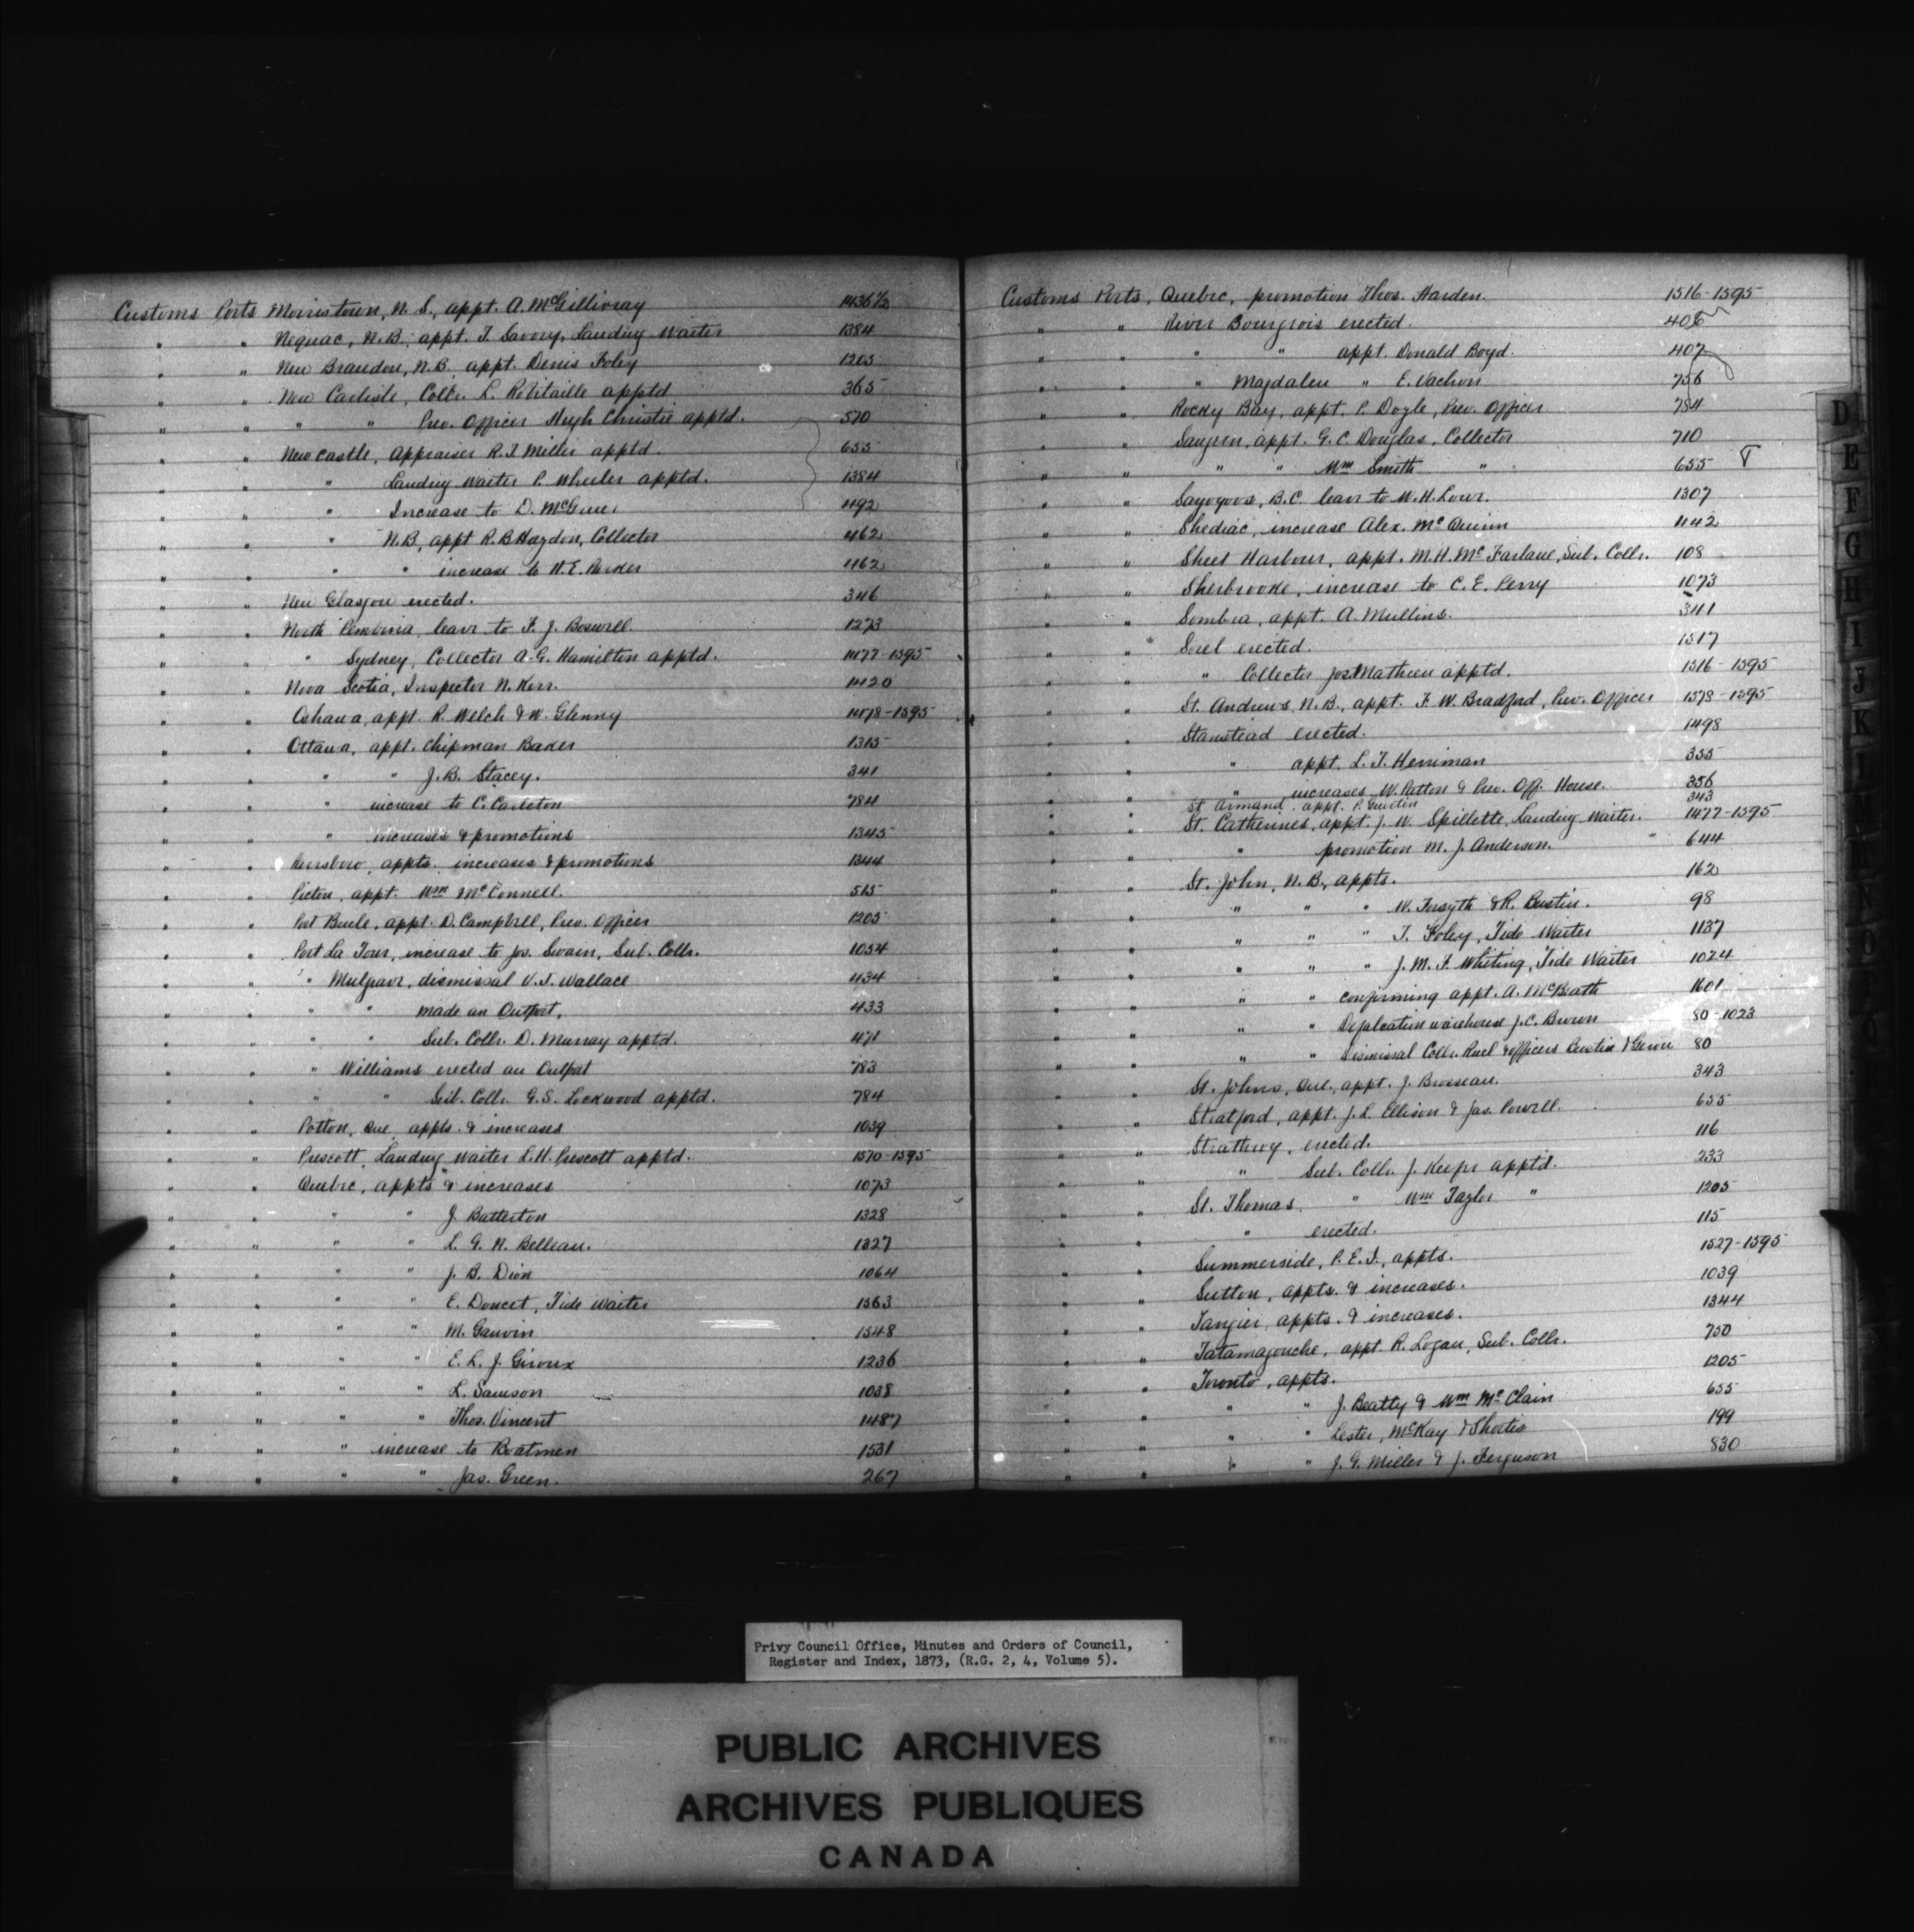 Customs Ports Morristown, N. S., appt. A. McGillivray 1436½
" " Neguac, N.B., appt. T. Savory, Landing Waiter 1384
" " New Brandon, N.B. appt. Denis Foley 1205
" " New Carlisle, Collr. L. Robitaille apptd 365
" " " " Prev. Officer Hugh Christie apptd. 570
" " Newcastle, Appraiser R. T. Miller apptd. 655
" " " Landing Waiter P. Wheeler apptd. 1384
" " " Increase to D. 1192
" " " N.B., appt R. B. Haydon, Collector 462
" " " " increase to W. E. Parker 1162
" " New Glasgow erected. 346
" " North Pembina, leave to F. J. Boswell. 1273
" " " Sydney, Collector A. G. Hamilton apptd. 1477-1595
" " Nova Scotia, Inspector N. Kerr. 1420
" " Oshawa, appt. R. Welch & W. Glenny 1478-1595
" " Ottawa, appt. Chipman Baker 1315
" " " " J. B. Stacey. 341
" " " increase to C. Carleton 784
" " " increases & promotions 1345
" " Parrsboro, appts. increases & promotions 1344
" " Picton, appt. Wm McConnell. 515
" " Port Burle, appt. D. Campbell, Prev. Officer 1205
" " Port La Tour, increase to Jos. Swain, Sub. Collr. 1054
" " " Mulgrave, dismissal V. J. Wallace 434
" " " " made an Outport. 433
" " " " Sub. Collr. D. Murray apptd. 471
" " " Williams erected an Outport 783
" " " " Sub. Collr. G. S. Lockwood apptd. 784
" " Potton, Que. appts. & increases 1039
" " Prescott, Landing Waiter L. H. Prescott apptd. 1570-1595
" " Quebec, appts & increases 1073
" " " " J. Batterton 1328
" " " " L. G. N. Belleau. 1327
" " " " J. B. Dion 1064
" " " " E. Doucet, Tide Waiter 1563
" " " " M. Gauvin 1548
" " " " E. L. J. Giroux 1236
" " " " L. Samson 1038
" " " " Thos. Vincent 1487
" " " increase to Boatmen 1531
" " " " Jas. Green. 267
Customs Ports, Quebec, promotion Thos. Harden. 1516-1595
" " River Bourgeois erected. 406
" " " " appt. Donald Boyd. 407
" " " Magdalen " E. Vachon 756
" " Rocky Bay, appt. P. Doyle, Prev. Officer 784
" " Saugeen, appt. G. C. Douglas, Collector 710
" " " " Wm Smith " 655
" " Sayoyoos, B.C. leave to W. H. Lowe. 1307
" " Shediac, increase Alex. McQuinn 1142
" " Sheet Harbour, appt. M. H. McFarlane, Sub. Collr. 108
" " Sherbrooke, increase to C. E. Perry 1073
" " Sombra, appt. A. Mullins. 341
" " Sorel erected. 1517
" " " Collector Jos. Mathieu apptd. 1516-1595
" " St. Andrews, N.B., appt. F. W. Bradford, Prev. Officer 1578-1595
" " Stanstead erected. 1498
" " " appt. L. T. Herriman 355
" " " increases W. Patton & Prev. Off. House. 356
St Armand, appt. P. 343
" " St. Catherines, appt. J. W. Spillette, Landing Waiter. 1477-1595
" " " promotion M. J. Anderson. 644
" " St. John, N.B., appts. 162
" " " " " W. Forsyth & R. Bustin. 98
" " " " " T. Foley, Tide Waiter 1137
" " " " " J. M. F. Whiting, Tide Waiter 1024
" " " " confirming appt. A. McBeath 1601
" " " " Defalcation warehouse J. C. Brown 80-1023
" " " " Dismissal Collr. Ruel & officers Bustin & 80
" " St. Johns, Que., appt. J. Brosseau. 343
" " Stratford, appt. J. L. Ellison & Jas. Powell. 655
" " Strathroy, erected. 116
" " " Sub. Collr. J. Keefe apptd. 233
" " St. Thomas. " Wm Taylor " 1205
" " " erected. 115
" " Summerside, P. E. I., appts. 1527-1595
" " Sutton, appts. & increases. 1039
" " Tangier, appts. & increases. 1344
" " Tatamagouche, appt. R. Logan, Sub. Collr. 750
" " Toronto, appts. 1205
" " " " J. Beatty & Wm McClain 655
" " " " Lester, McKay & Shortis 199
" " " " J. G. Miller & J. Ferguson 830
D
E
F
G
H
I
J
K
Privy Council Office, Minutes and Orders of Council,
Register and Index, 1873, (R.G. 2, 4, Volume 5).
PUBLIC ARCHIVES
ARCHIVES PUBLIQUES
CANADA